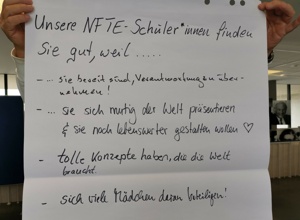 Unsere NFTE-Schüler*innen finden
Sie gut, weil .....
- ... sie bereit sind, Verantwortungen über-
nehmen!
- ... sie sich mutig der Welt präsentieren
& sie noch lebenswerter gestalten wollen ♡
- tolle Konzepte haben, die die Welt
braucht
- sich viele Mädchen daran beteiligen!